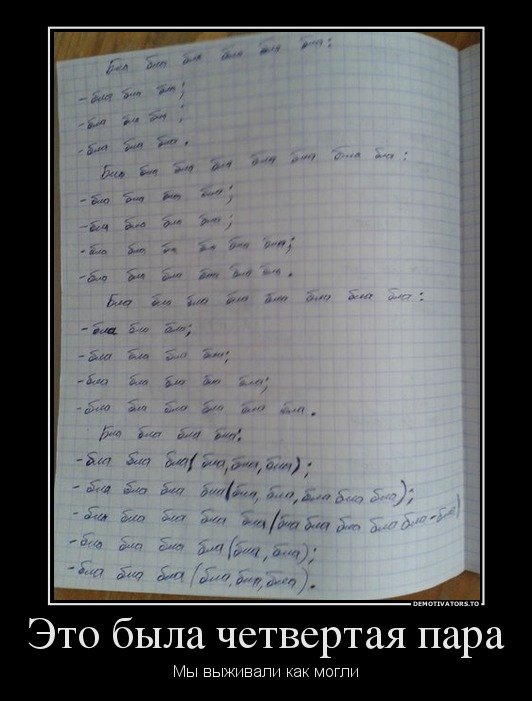 Бла бла бла бла бла бла:
-бла бла бла;
-бла бла бла ;
-бла бла бла.
Бла бла бла бла бла бла бла бла :
-бла бла бла бла;
-бла бла бла бла;
-бла бла бла бла бла бла;
-бла бла бла бла бла бла.
Бла бла бла бла бла бла бла бла:
-бла бла бла;
-бла бла бла бла;
-бла бла бла бла бла;
-бла бла бла бла бла бла.
Бла бла бла бла:
-бла бла бла( бла, бла, бла);
- бла бла бла бла(бла, бла, бла бла бла);
- бла бла бла бла бла(бла бла бла бла бла-бла)
-бла бла бла бла(бла, бла);
-бла бла бла (бла, бла, бла).
DEMOTIVATORS.TO
Это была четвертая пара
Мы выживали как могли